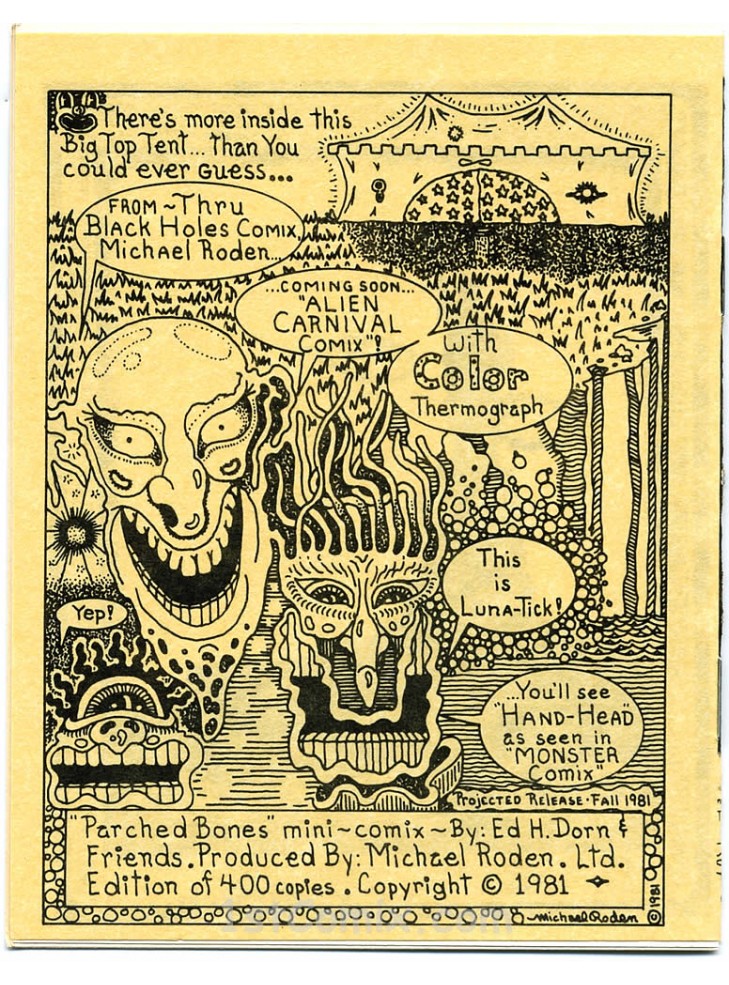 There's more inside this
Big Top Tent... than You
could ever GUESS...
FROM ~ Thru
Black Holes Comix,
Michael Roden...
...COMING SOON...
"ALIEN
CARNIVAL
COMIX"!
With
Color
Thermograph
This
is
LUNA-TICK!
Yep!
...You'll see
"HAND-HEAD"
as seen in
"MONSTER
COMIX"
PROJECTED RELEASE · FALL 1981
"Parched Bones" mini~comix ~ By: Ed H. Dorn &
Friends. Produced By: Michael Roden. Ltd.
Edition of 400 copies. Copyright © 1981
Michael Roden
© 1981